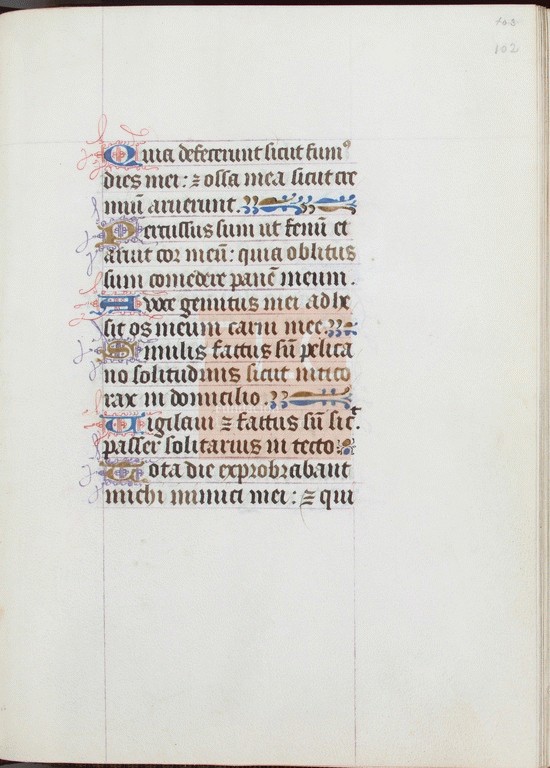 102
102
Quia defecerunt sicut fumꝰ
dies mei: ⁊ ossa mea sicut cre
miū aruerunt.
Percussus sum ut fenū et
aruit cor meū: quia oblitus
sum comedere panē meum.
A voce gemitus mei adhe
sit os meum carni mee.
Similis factus sū pelica
no solitudinis sicut nitico
rax in domicilio.
Vigilaui ⁊ factus sū sic̄
passer solitarius in tecto:
Tota die exprobrabant
michi inimici mei: ⁊ qui